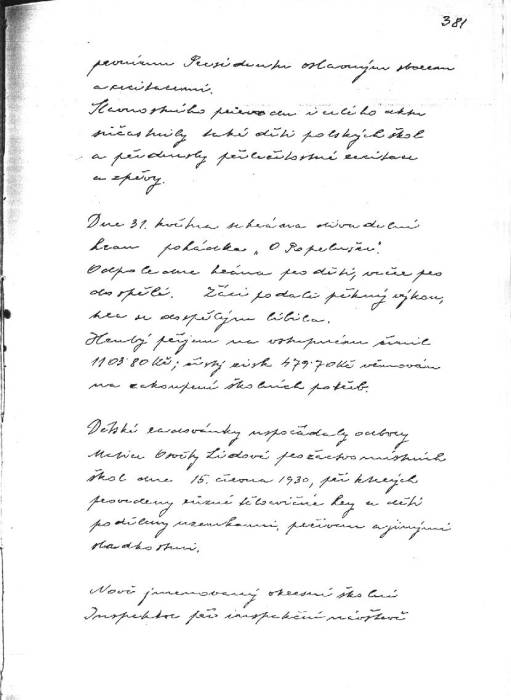 381
prvnímu Presidentu oslavným sborem
a recitacemi.
Slavnostního průvodu i celého aktu
súčastnily také děti polských škol
a přednesly příležitostné recitace
a zpěvy.
Dne 31. května sehrána divadelní
hra pohádka „O Popelušce".
Odpoledne hrána pro děti, večer pro
dospělé. Žáci podali pěkný výkon,
hra se dospělým líbila.
Hrubý příjem na vstupném činil
1103·80 Kč; čistý zisk 479·70 Kč věnován
na zakoupení školních potřeb.
Dětské radovánky uspořádaly odbory
Matice Osvěty Lidové pro žactvo místních
škol dne 15. června 1930, při kterých
provedeny různé tělocvičné hry a děti
poděleny uzenkami, pečivem a jinými
sladkostmi.
Nově jmenovaný okresní školní
Inspektor při inspekční návštěvě